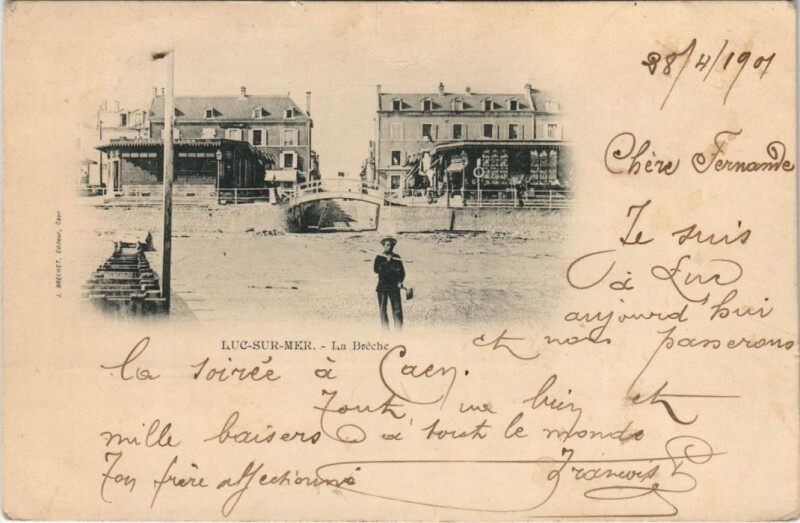 28/4/1901
Chère Fernande
Je suis
à Luc
aujourd'hui
et nous passerons
LUC-SUR-MER. - La Brèche
la soirée à Caen.
Tout va bien et
mille baisers à tout le monde
Ton frère affectionné François
J. BRÉCHET, Éditeur, Caen